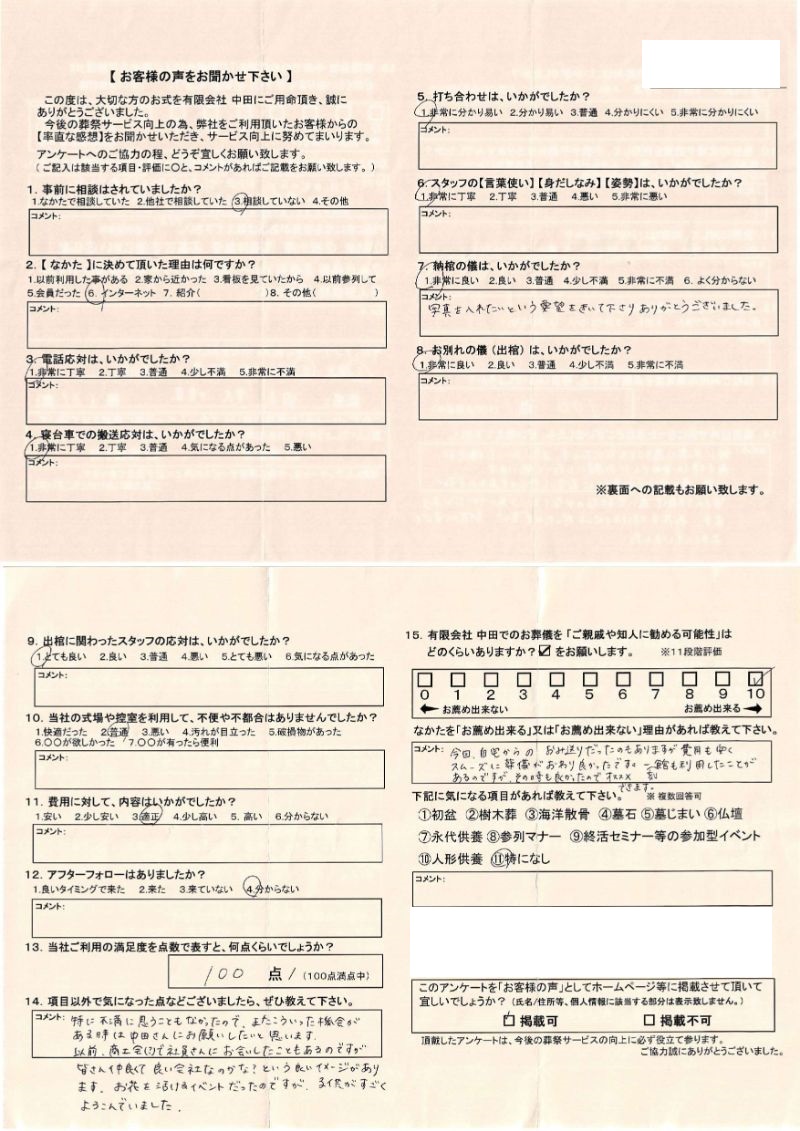 【 お客様の声をお聞かせ下さい 】
この度は、大切な方のお式を有限会社 中田にご用命頂き、誠に
ありがとうございました。
今後の葬祭サービス向上の為、弊社をご利用頂いたお客様からの
【率直な感想】をお聞かせいただき、サービス向上に努めてまいります。
アンケートへのご協力の程、どうぞ宜しくお願い致します。
( ご記入は該当する項目・評価に〇と、コメントがあればご記載をお願い致します。 )
1. 事前に相談はされていましたか？
1.なかたで相談していた 2.他社で相談していた 3.相談していない 4.その他
コメント:
2.【 なかた 】に決めて頂いた理由は何ですか？
1.以前利用した事がある 2.家から近かった 3.看板を見ていたから 4.以前参列して
5.会員だった 6. インターネット 7. 紹介( )8. その他( )
コメント:
3. 電話応対は、いかがでしたか？
1.非常に丁寧 2.丁寧 3.普通 4.少し不満 5.非常に不満
コメント:
4. 寝台車での搬送応対は、いかがでしたか？
1.非常に丁寧 2.丁寧 3.普通 4.気になる点があった 5.悪い
コメント:
5. 打ち合わせは、いかがでしたか？
1.非常に分かり易い 2.分かり易い 3.普通 4.分かりにくい 5.非常に分かりにくい
コメント:
6.スタッフの【言葉使い】【身だしなみ】【姿勢】は、いかがでしたか？
1.非常に丁寧 2.丁寧 3.普通 4.悪い 5.非常に悪い
コメント:
7. 納棺の儀は、いかがでしたか？
1.非常に良い 2.良い 3.普通 4.少し不満 5.非常に不満 6. よく分からない
コメント:
写真を入れたいという要望をきいて下さりありがとうございました。
8. お別れの儀（出棺）は、いかがでしたか？
1.非常に良い 2.良い 3.普通 4.少し不満 5.非常に不満
コメント:
※裏面への記載もお願い致します。
9. 出棺に関わったスタッフの応対は、いかがでしたか？
1.とても良い 2.良い 3.普通 4.悪い 5.とても悪い 6.気になる点があった
コメント:
10. 当社の式場や控室を利用して、不便や不都合はありませんでしたか？
1.快適だった 2.普通 3.悪い 4.汚れが目立った 5.破損物があった
6.〇〇が欲しかった 7.〇〇が有ったら便利
コメント:
11. 費用に対して、内容はいかがでしたか？
1.安い 2.少し安い 3.適正 4.少し高い 5. 高い 6.分からない
コメント:
12. アフターフォローはありましたか？
1.良いタイミングで来た 2.来た 3.来ていない 4.分からない
コメント:
13. 当社ご利用の満足度を点数で表すと、何点くらいでしょうか？
100 点 / (100点満点中)
14. 項目以外で気になった点などございましたら、ぜひ教えて下さい。
コメント: 特に不満に思うこともなかったので、またこういった機会が
ある時は中田さんにお願いしたいと思います。
以前、商工会内で社員さんにお会いしたこともあるのですが
皆さん仲良くて良い会社なのかな？という良いイメージがあり
ます。お花を活けるイベントだったのですが、子供がすごく
よろこんでいました。
15. 有限会社 中田でのお葬儀を「ご親戚や知人に勧める可能性」は
どのくらいありますか？☑ をお願いします。 ※11段階評価
0 1 2 3 4 5 6 7 8 9 10
お薦め出来ない お薦め出来る
なかたを「お薦め出来る」又は「お薦め出来ない」理由があれば教えて下さい。
コメント: 今回、自宅からのお見送りだったのもありますが費用も安く
スムーズに葬儀がおわり良かったです。 館も利用したことが
あるのですが、その時も良かったのでオススメ
できます。
下記に気になる項目があれば教えて下さい。 ※ 複数回答可
①初盆 ②樹木葬 ③海洋散骨 ④墓石 ⑤墓じまい ⑥仏壇
⑦永代供養 ⑧参列マナー ⑨終活セミナー等の参加型イベント
⑩人形供養 ⑪特になし
コメント:
このアンケートを「お客様の声」としてホームページ等に掲載させて頂いて
宜しいでしょうか？ (氏名/住所等、個人情報に該当する部分は表示致しません。)
☑ 掲載可 □ 掲載不可
頂戴したアンケートは、今後の葬祭サービスの向上に必ず役立て参ります。
ご協力誠にありがとうございました。